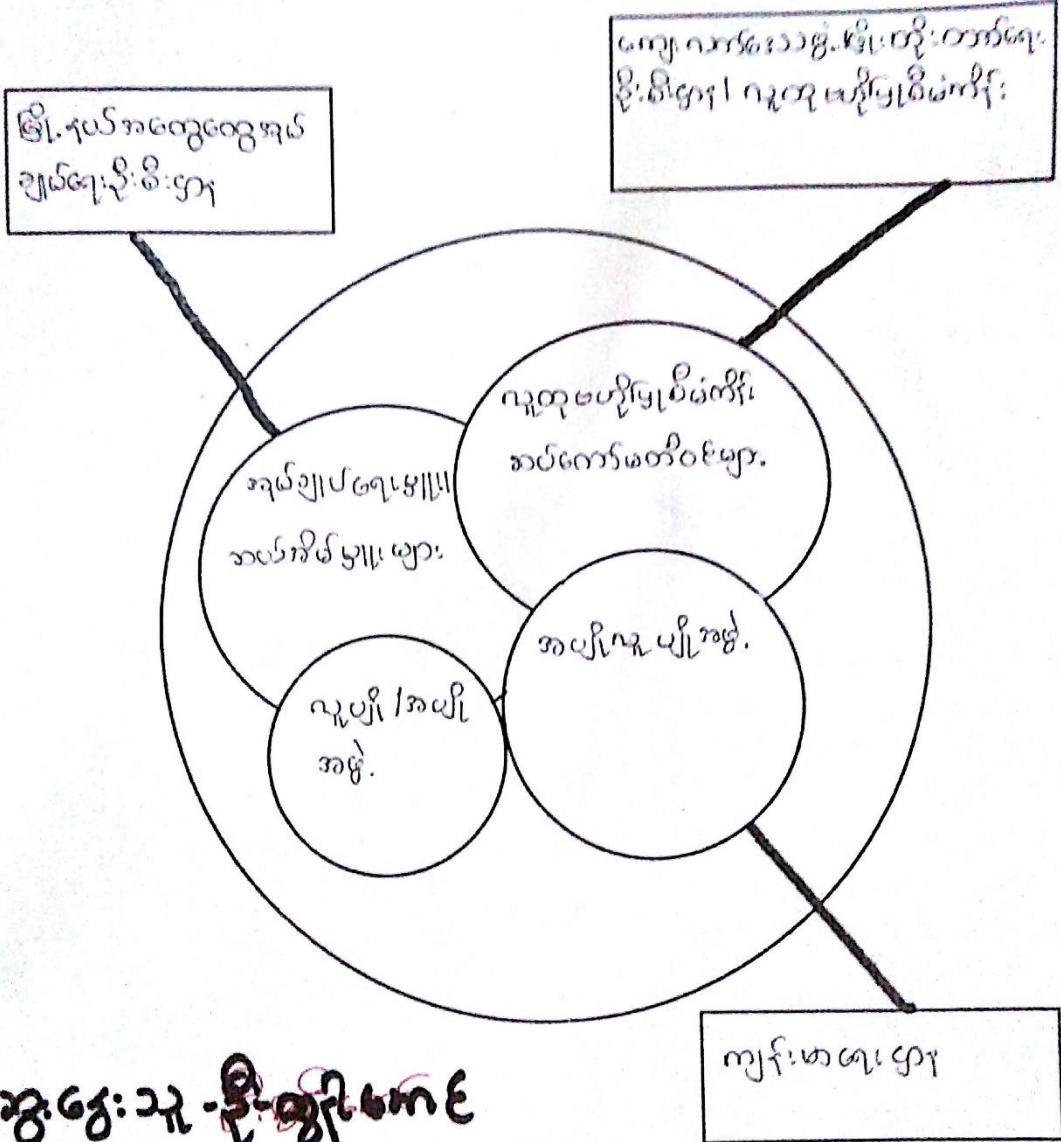 မြို့နယ်အထွေထွေအုပ်
ချုပ်ရေးဦးစီးဌာန
ကျေးလက်ဒေသဖွံ့ဖြိုးတိုးတက်ရေး
ဦးစီးဌာန / လူထုဗဟိုပြုစီမံကိန်း
လူထုဗဟိုပြုစီမံကိန်း
ကော်မတီဝင်များ
အုပ်ချုပ်ရေးမှူး၊
ဆယ်အိမ်မှူးများ
အပျိုလူပျိုအဖွဲ့
လူပျို / အပျို
အဖွဲ့
ကျန်းမာရေးဌာန
ဆွေးနွေးသူ - ဦး